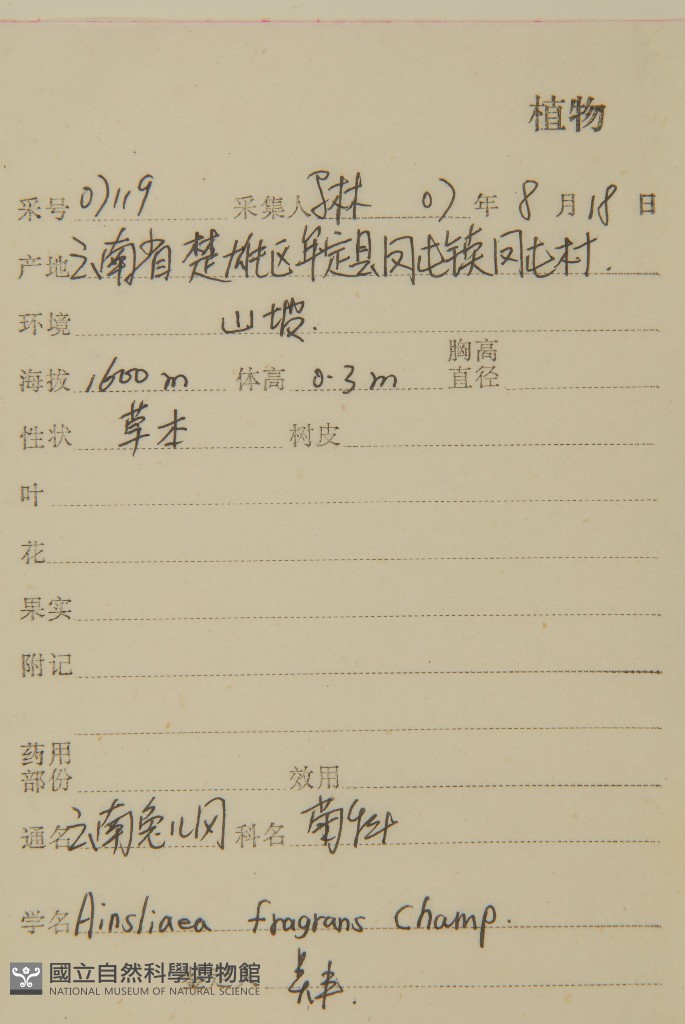 植物
采号 07119 采集人 林 07 年 8 月 18 日
产地 云南省楚雄区牟定县凤屯镇凤屯村.
环境 山坡.
胸高
海拔 1600 m 体高 0.3 m 直径
性状 草本 树皮
叶
花
果实
附记
药用
部份 效用
通名 云南兔儿风 科名 菊科
学名 Ainsliaea fragrans Champ.
國立自然科學博物館
NATIONAL MUSEUM OF NATURAL SCIENCE